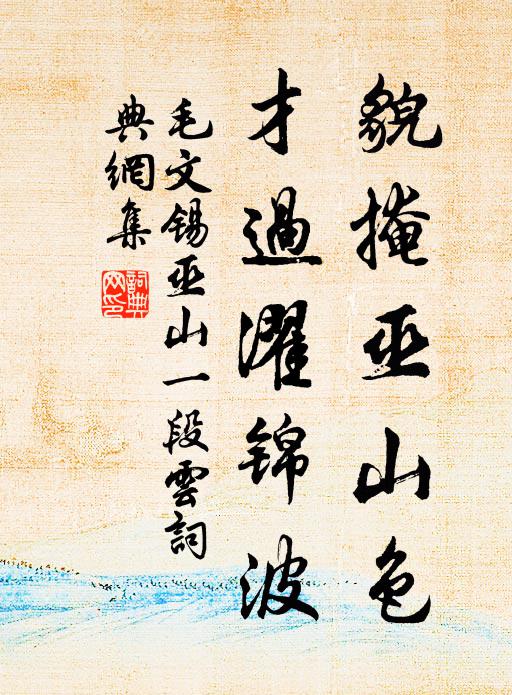 貌掩巫山色
才過濯錦波
毛文锡巫山一段雲詞
典網集
詞典網印